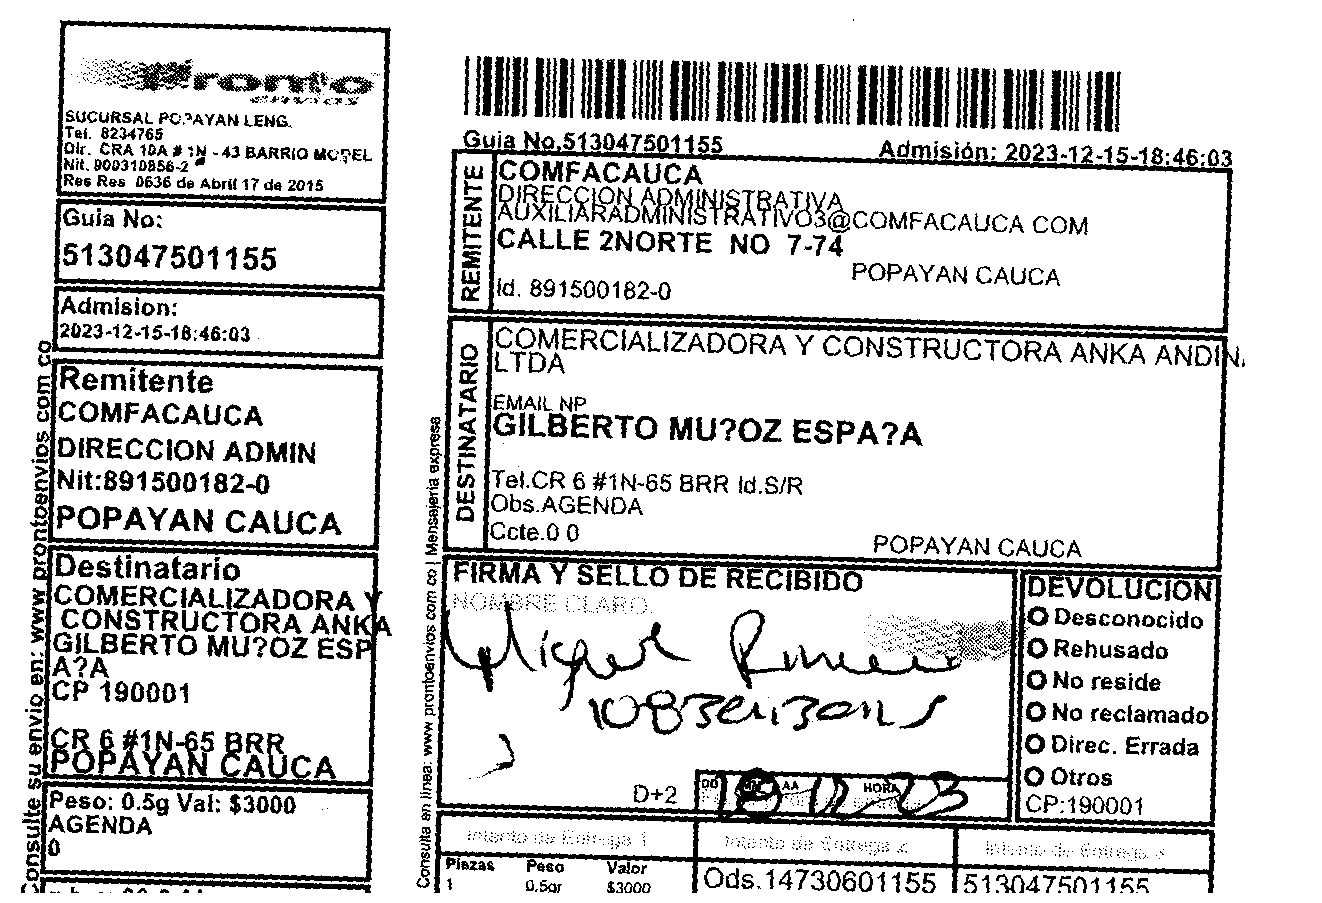 Pronto
envios
SUCURSAL POPAYAN LENG.
Tel. 8234765
Dir. CRA 10A # 1N - 43 BARRIO MODEL
Nit. 900310856-2
Res Res 0636 de Abril 17 de 2015
Guia No:
513047501155
Admision:
2023-12-15-18:46:03
Remitente
COMFACAUCA
DIRECCION ADMIN
Nit:891500182-0
POPAYAN CAUCA
Destinatario
COMERCIALIZADORA Y
CONSTRUCTORA ANKA
GILBERTO MU?OZ ESP
A?A
CP 190001
CR 6 #1N-65 BRR
POPAYAN CAUCA
Peso: 0.5g Val: $3000
AGENDA
0
Consulte su envio en: www prontoenvios com co
Guia No.513047501155
Admisión: 2023-12-15-18:46:03
REMITENTE
COMFACAUCA
DIRECCION ADMINISTRATIVA
AUXILIARADMINISTRATIVO3@COMFACAUCA COM
CALLE 2NORTE NO 7-74
POPAYAN CAUCA
Id. 891500182-0
DESTINATARIO
COMERCIALIZADORA Y CONSTRUCTORA ANKA ANDIN
LTDA
EMAIL NP
GILBERTO MU?OZ ESPA?A
Tel.CR 6 #1N-65 BRR Id.S/R
Obs.AGENDA
Ccte.0 0
POPAYAN CAUCA
Consulta en línea: www prontoenvios com co | Mensajeria expresa
FIRMA Y SELLO DE RECIBIDO
NOMBRE CLARO.
Miguel
D+2
DD
AA
HORA
DEVOLUCION
Desconocido
Rehusado
No reside
No reclamado
Direc. Errada
Otros
CP:190001
Intento de Entrega 1
Intento de Entrega 2
Intento de Entrega 3
Piezas Peso Valor
1 0.5gr $3000
Ods.14730601155
513047501155